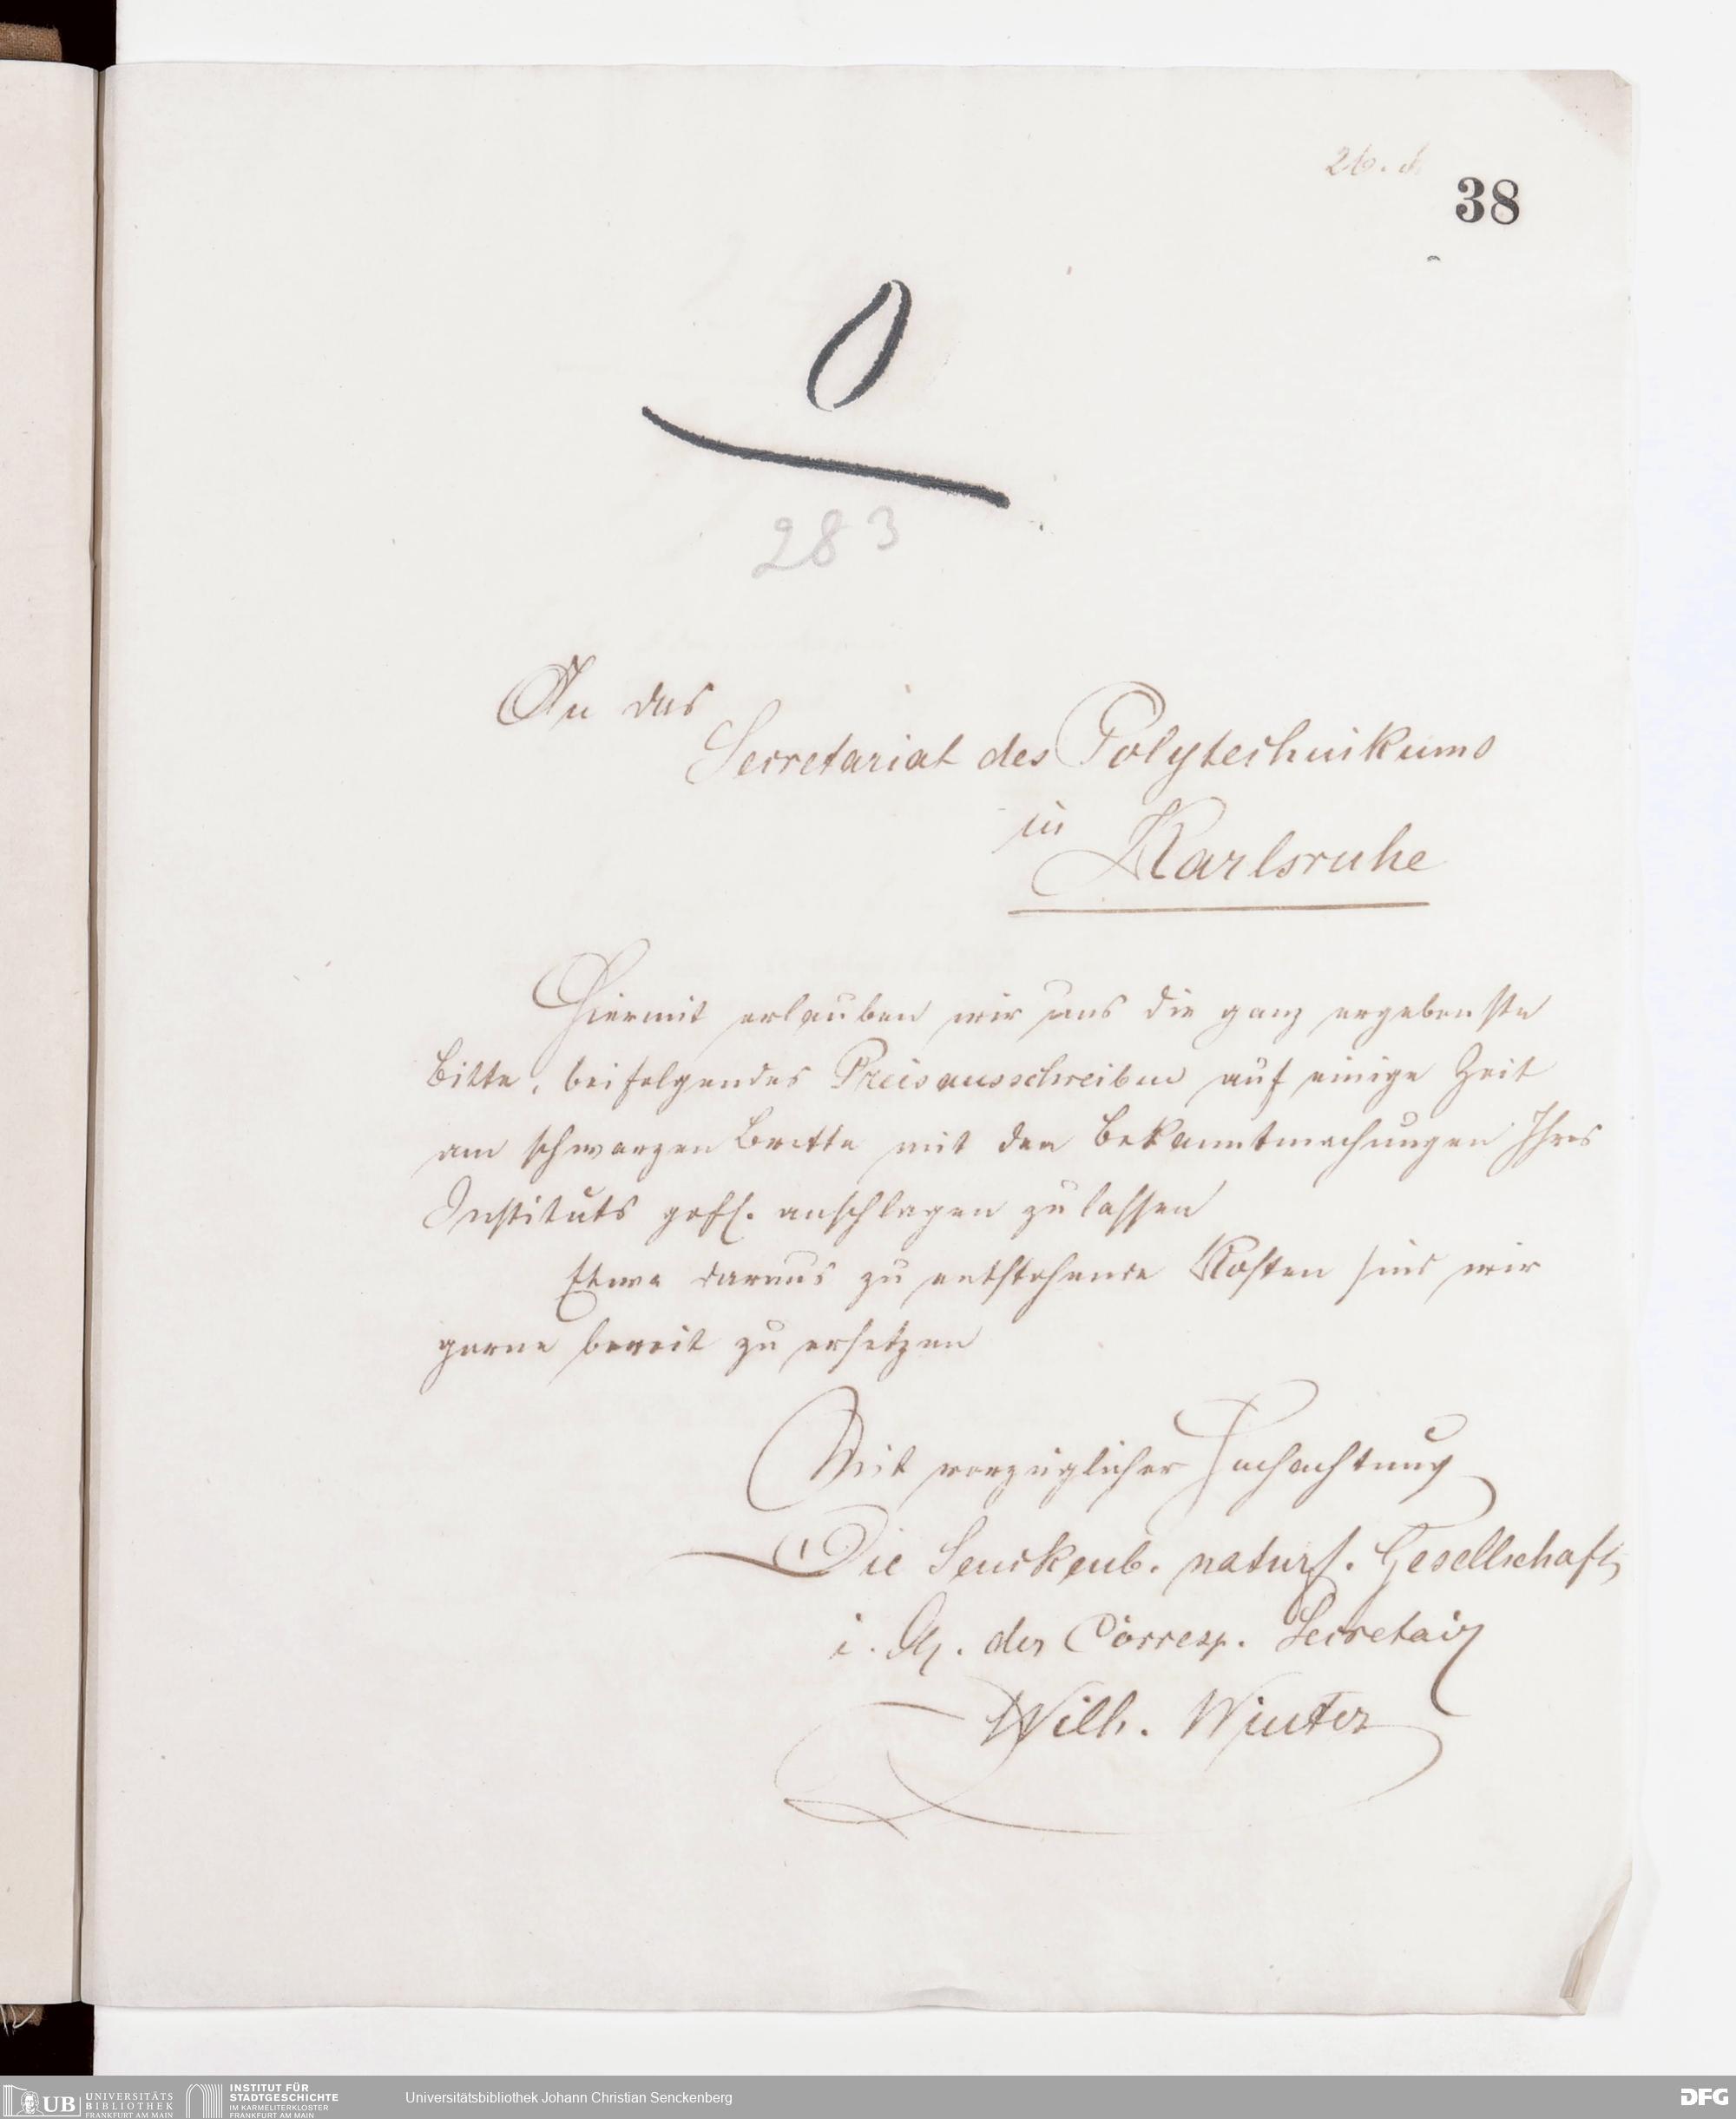 26.
38
0
283
An das
Secretariat des Polytechnikums
in
Karlsruhe
Hiermit erlauben wir uns die ganz ergebenste
Bitte, beifolgendes Preisausschreiben auf einige Zeit
am schwarzen Brette mit den Bekanntmachungen Ihres
Instituts gefl. anschlagen zu lassen
Etwa daraus zu entstehende Kosten sind wir
gerne bereit zu ersetzen
Mit vorzüglicher Hochachtung
Die Senckenb. naturf. Gesellschaft,
i. A. der Corresp. Secretair
Wilh. Winter
UB UNIVERSITÄTS
BIBLIOTHEK
FRANKFURT AM MAIN
INSTITUT FÜR
STADTGESCHICHTE
IM KARMELITERKLOSTER
FRANKFURT AM MAIN
Universitätsbibliothek Johann Christian Senckenberg
DFG